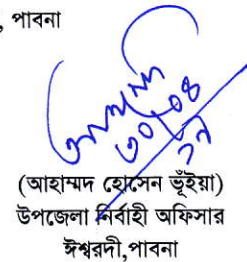 , পাবনা
৩০/০৪
(আহাম্মদ হোসেন ভূঁইয়া)
উপজেলা নির্বাহী অফিসার
ঈশ্বরদী,পাবনা